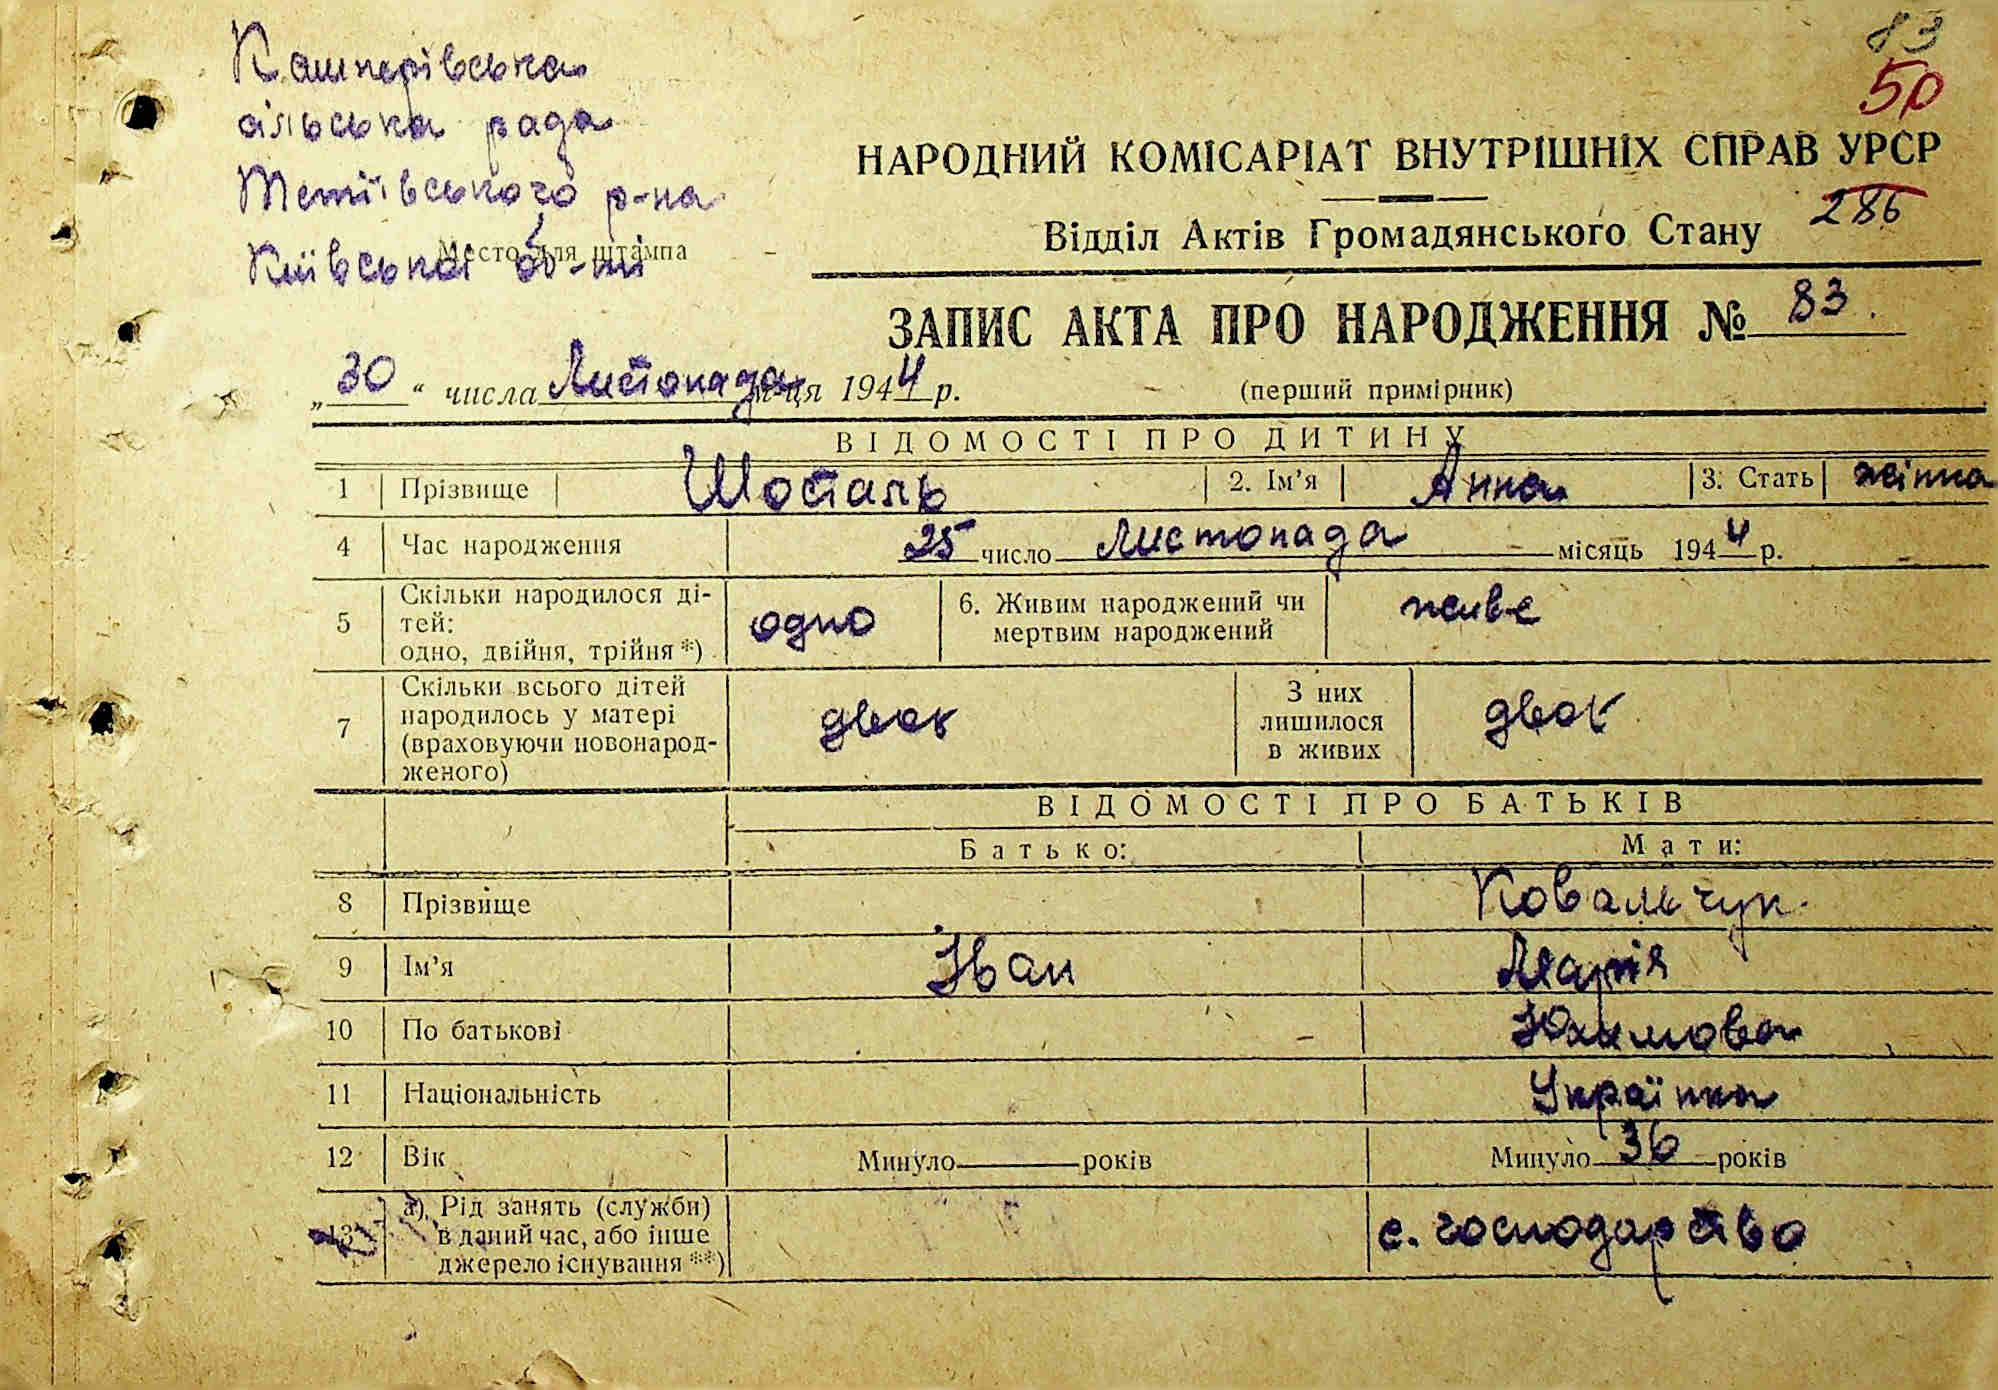 83
50
Кашперівська
сільська рада
Тетіївського р-на
Київської об-ті
Место для штампа
НАРОДНИЙ КОМІСАРІАТ ВНУТРІШНІХ СПРАВ УРСР
286
Відділ Актів Громадянського Стану
ЗАПИС АКТА ПРО НАРОДЖЕННЯ № 83.
„30“ числа Листопада м-ця 1944 р.
(перший примірник)
ВІДОМОСТІ ПРО ДИТИНУ
1 Прізвище Шосталь 2. Ім’я Анна 3. Стать жінка
4 Час народження 25 число Листопада місяць 1944 р.
5 Скільки народилося ді-
тей:
одно, двійня, трійня *)
одно
6. Живим народжений чи
мертвим народжений
живе
7 Скільки всього дітей
народилось у матері
(враховуючи новонарод-
женого)
двоє
З них
лишилося
в живих
двоє
ВІДОМОСТІ ПРО БАТЬКІВ
Батько: Мати:
8 Прізвище Ковальчук
9 Ім’я Іван Марія
10 По батькові Юхимовна
11 Національність Українка
12 Вік Минуло років Минуло 36 років
13 а) Рід занять (служби)
в даний час, або інше
джерело існування **)
с. господарство